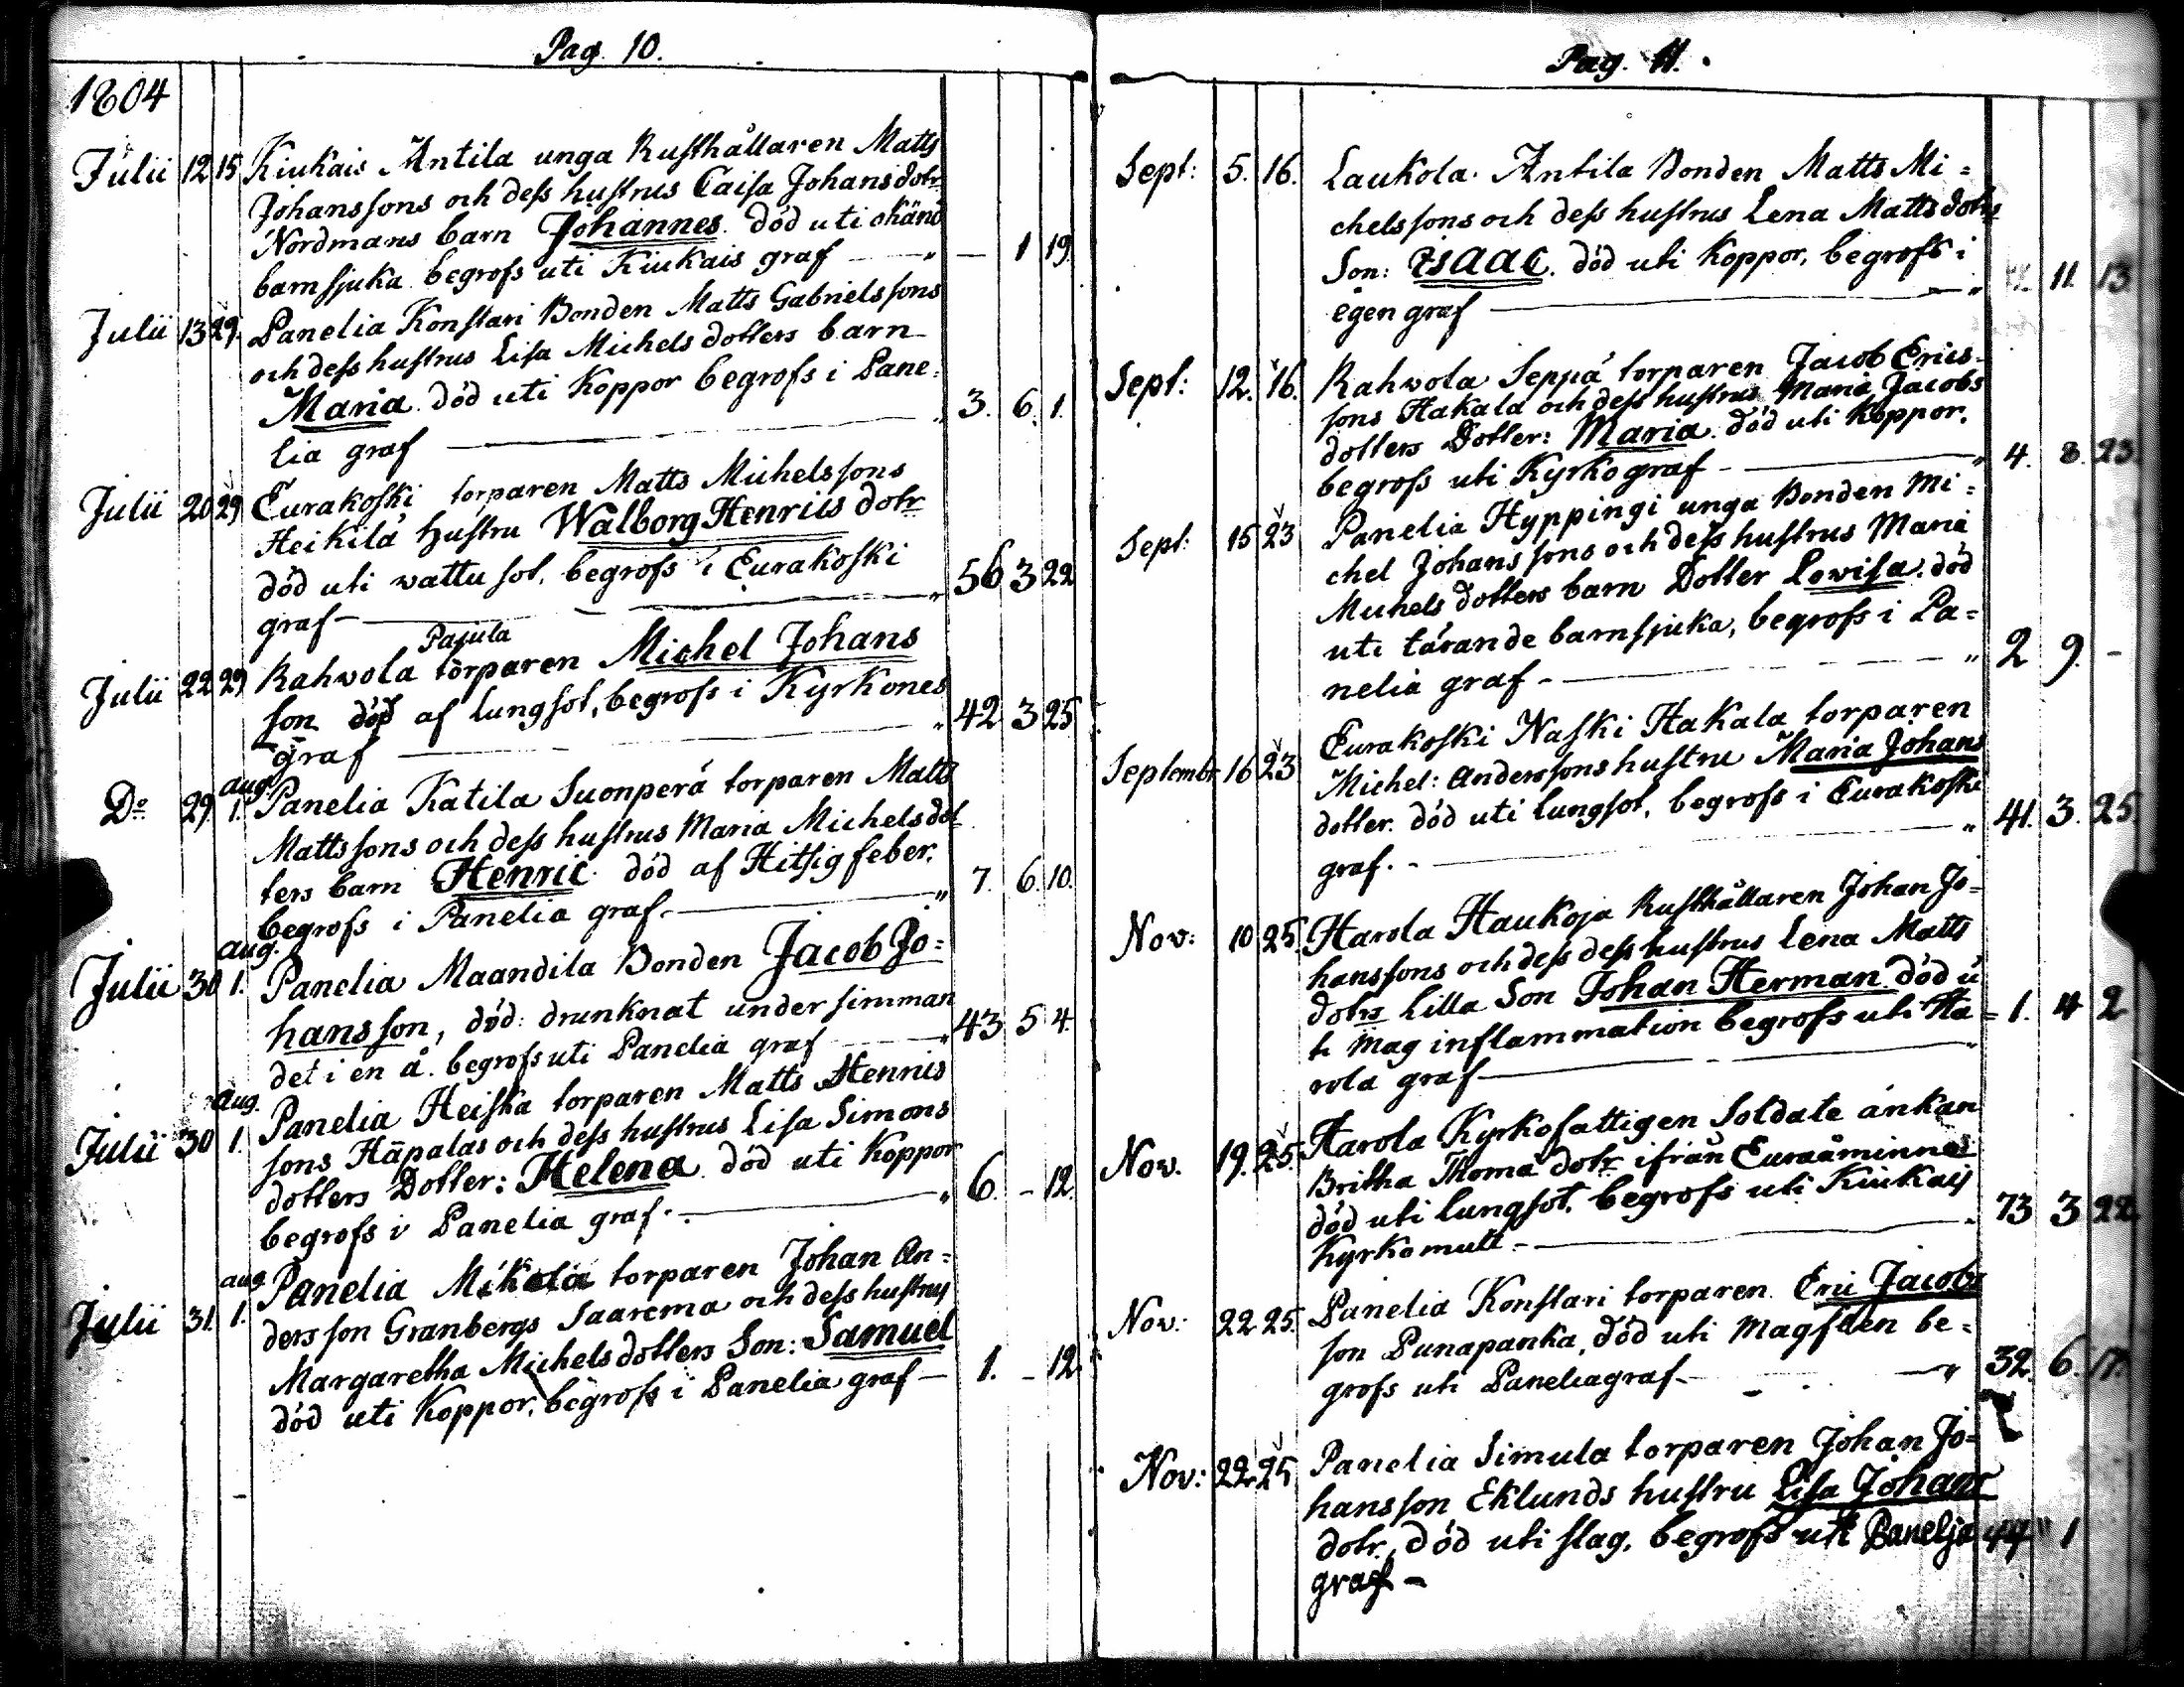 Pag. 10.
1804
Julii 12 15 Kiukais Antila unga Rusthållaren Matts
Johanssons och dess hustrus Caisa Johansdotr
Nordmans barn Johannes. död uti okänd
barnsjuka begrofs uti Kiukais graf — „ — 1 19.
Julii 13 29. Panelia Konstari Bonden Matts Gabrielssons
och dess hustrus Lisa Michels dotters barn
Maria. död uti Koppor begrofs i Pane-
lia graf — „ 3. 6. 1.
Julii 20 29 Eurakoski torparen Matts Michelssons
Heikilä Hustru Walborg Henrics dotr
död uti wattusot, begrofs i Eurakoski
graf — „ 56 3 22
Pajula
Julii 22 29 Rahvola torparen Michel Johans
son död af lungsot, begrofs i Kyrkones
graf — „ 42 3 25
aug.
Do 29 1. Panelia Katila Suonperä torparen Matts
Mattssons och dess hustrus Maria Michels dot
ters barn Henric. död af Hitsig feber.
begrofs i Panelia graf. — „ 7. 6. 10.
aug.
Julii 30 1. Panelia Maandila Bonden Jacob Jo=
hansson, död: drunknat under simman
det i en å. begrofs uti Panelia graf — „ 43 5 4.
Aug.
Julii 30 1. Panelia Heiska torparen Matts Henrics
sons Häpalas och dess hustrus Lisa Simons
dotters Dotter: Helena. död uti Koppor
begrofs i Panelia graf. — „ 6. - 12.
aug
Julii 31. 1. Panelia Mikola torparen Johan An=
dersson Granbergs Saarema och dess hustrus
Margaretha Michels dotters Son: Samuel
död uti Koppor, begrofs i Panelia graf — 1. - 12.
Pag. 11.
Sept: 5. 16. Laukola. Antila Bonden Matts Mi=
chelssons och dess hustrus Lena Matts dotrs
Son: Isaac. död uti Koppor, begrofs i
egen graf — „ 11. 13
Sept: 12. 16. Rahvola Seppä torparen Jacob Erics-
sons Hakala och dess hustrus Maria Jacobs
dotters Dotter: Maria. död uti Koppor.
begrofs uti Kyrko graf — „ 4. 8. 23.
Sept: 15 23 Panelia Hyppingi unga Bonden Mi=
chel Johanssons och dess hustrus Maria
Michels dotters barn Dotter Lovisa. död
uti tärande barnsjuka, begrofs i Pa=
nelia graf - — „ 2 9. -
Septembr. 16 23 Eurakoski Naski Hakala torparen
Michel: Anderssons hustru Maria Johans
dotter. död uti lungsot, begrofs i Eurakoski
graf. - — „ 41. 3. 25
Nov: 10 25. Harola Haukoja Rusthållaren Johan Jo=
hanssons och dess dess hustrus Lena Matts
dotrs Lilla Son Johan Herman död u
ti Mag inflammation begrofs uti Ha = 1. 4 2
rola graf — „
Nov. 19. 25. Harola Kyrkofattigen Soldate änkan
Britha Thoma dotr ifrån Euraåminne
död uti lungsot. begrofs uti Kiukais
Kyrkomult - — „ 73 3 22
Nov: 22 25. Panelia Konstari torparen Eric Jacobs
son Punapanka, död uti Magsten be=
grofs uti Paneliagraf — „ 32. 6. 17.
Nov: 22 25 Panelia Simula torparen Johan Jo=
hansson Eklunds hustru Lisa Johans
dotr. död uti slag. begrofs uti Panelia 44 „ 1
graf -